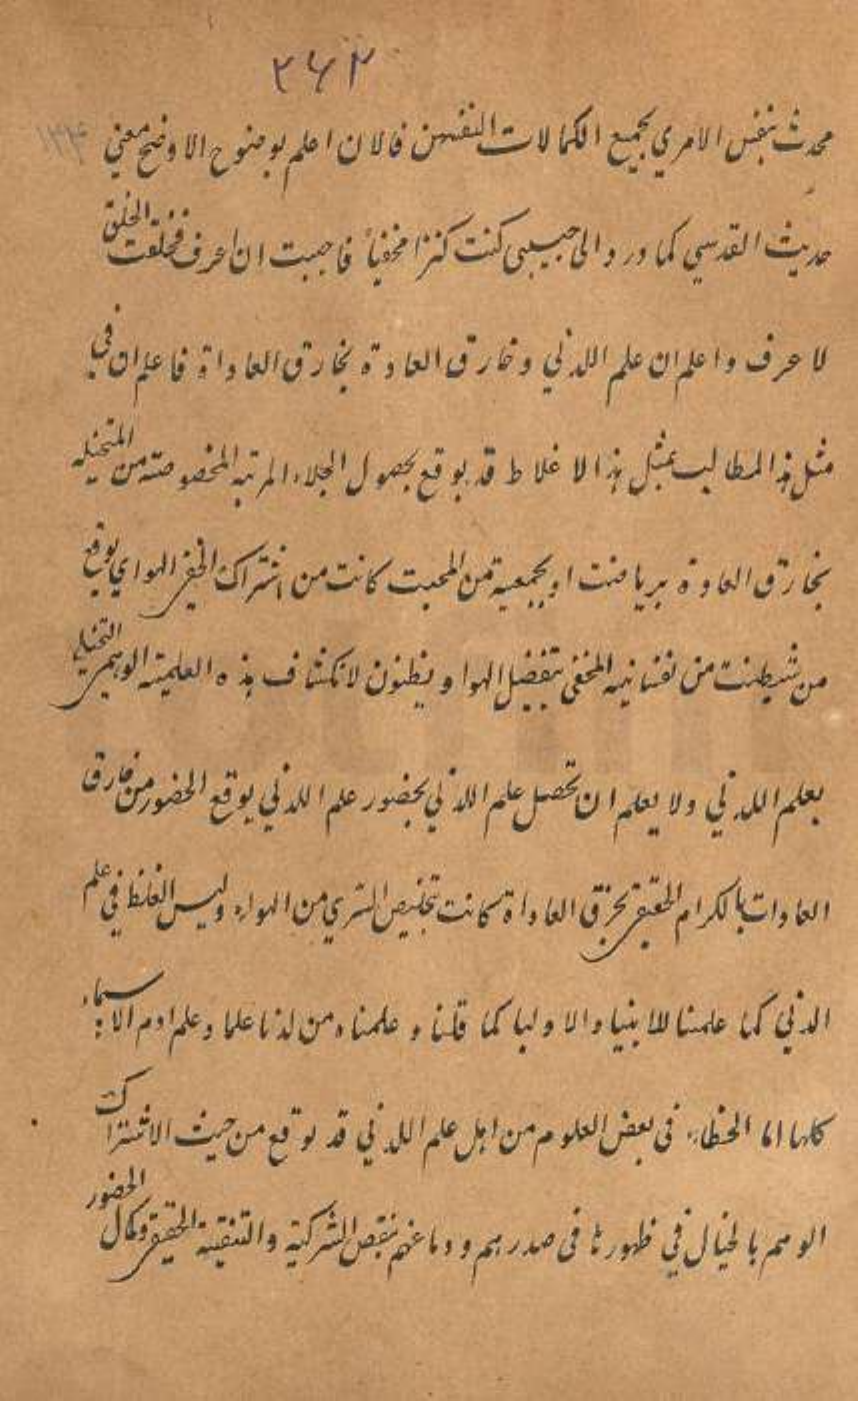 ۲۶۲
۱۳۴
محدث بنفس الامري بجميع الكمالات النفيس فالان اعلم بوضوح الاوضح معني
حديث القدسي كما ورد الى حبيبى كنت كنزا مخفياً فاحببت ان اعرف فخلقت الخلق
لاعرف واعلم ان علم اللدني وخارق العادة بخارق العاداة فاعلم ان في
مثل هذا المطالب بمثل هذا الاغلاط قد يوقع بحصول الجلاء المرتبه المخصوصته من المتخيله
بخارق العادة برياضت او بجمعية من المحبت كانت من اشتراك الخفي الهواي يوقع
من شيطنت من نفسانيه المخفي بتفضيل الهوا ويظنون لانكشاف هذه العلميته الوهمي التخيلي
بعلم اللدني ولا يعلم ان تحصل علم اللدني بحضور علم اللدني يوقع الحضور من خارق
العادات بالكرام الحقيقي بخرق العاداة كانت بتخليص السري من الهواء وليس الغلط في علم
الدني كما علمنا للانبيا والاوليا كما قلنا و علمناه من لدنا علما وعلم ادم الاسماء
كلها اما الخطاء فى بعض العلوم من اهل علم اللدني قد يوقع من حيث الاشتراك
الوهم بالخيال في ظهورها فى صدرهم ودماغهم بنقص الشركية والتنقية الحقيقي وكمال الحضور